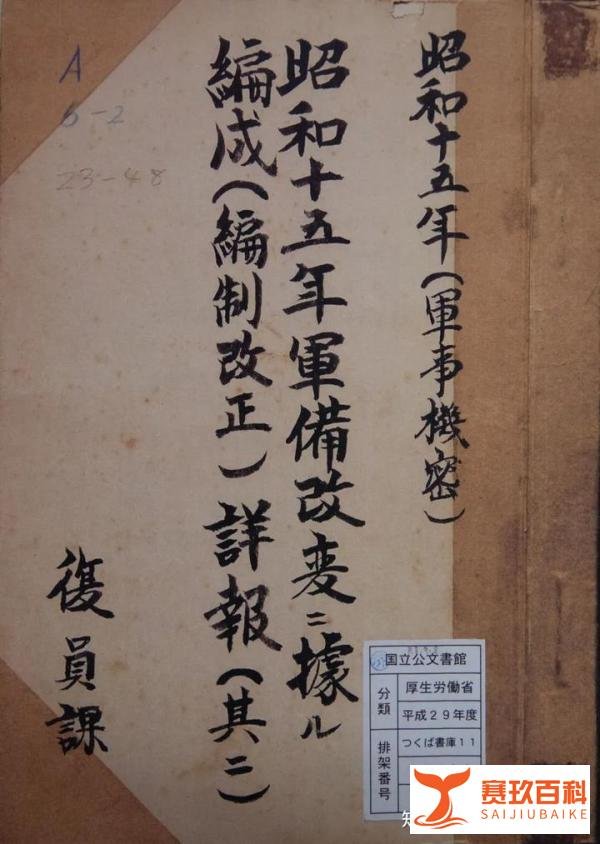 昭和十五年（軍事機密）
昭和十五年軍備改変ニ據ル
編成（編制改正）詳報（其二）
復員課
A
6-2
23-48
国立公文書館
分類
厚生労働省
平成29年度
排架番号
つくば書庫11
赛玖百科
SAIJIUBAIKE